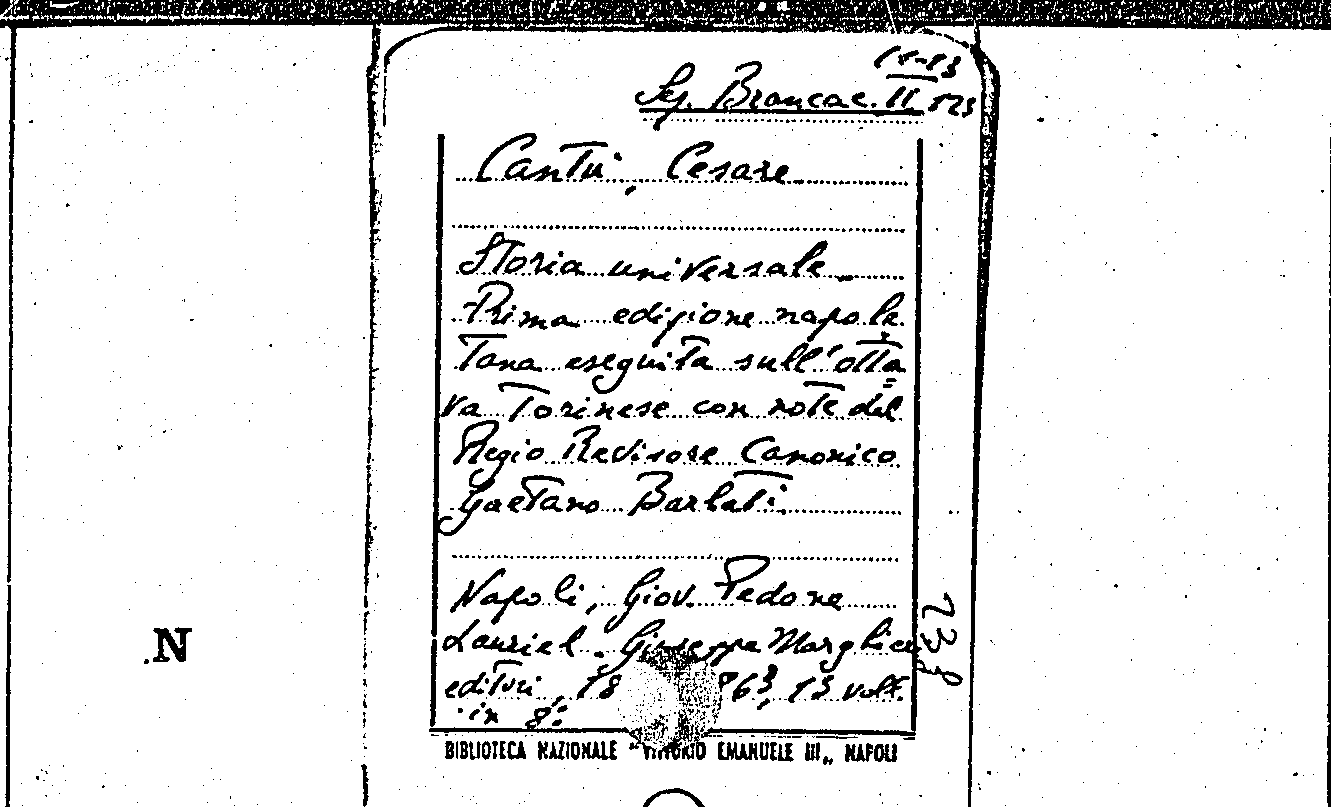 (1-13
Sez. Brancac. II. 123
Cantù, Cesare
Storia universale
Prima edizione napole
tana eseguita sull'otta
va Torinese con note del
Regio Revisore Canonico
Gaetano Barbati.
Napoli, Giov. Pedone
Lauriel. Giuseppe Marghieri
editori, 18 863, 13 voll.
in 8°
738
N
BIBLIOTECA NAZIONALE "VITTORIO EMANUELE III„ NAPOLI